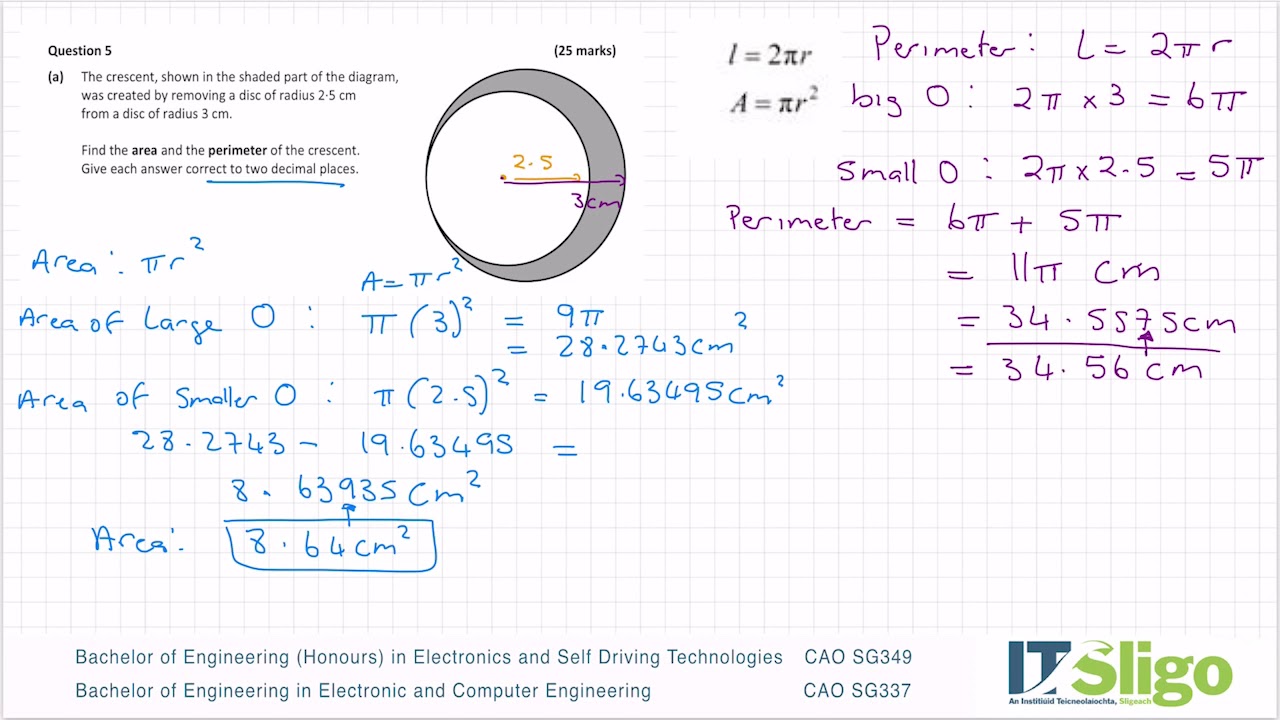 Question 5 (25 marks)
(a) The crescent, shown in the shaded part of the diagram,
was created by removing a disc of radius 2·5 cm
from a disc of radius 3 cm.
Find the area and the perimeter of the crescent.
Give each answer correct to two decimal places.
2.5
3cm
l = 2πr
A = πr²
Perimeter: L = 2πr
big O: 2π × 3 = 6π
Small O: 2π × 2.5 = 5π
Perimeter = 6π + 5π
= 11π cm
= 34.5575cm
= 34.56 cm
Area: πr²
A = πr²
Area of Large O: π(3)² = 9π
= 28.2743cm²
Area of Smaller O: π(2.5)² = 19.63495cm²
28.2743 - 19.63495 =
8.63935cm²
Area: 8.64cm²
Bachelor of Engineering (Honours) in Electronics and Self Driving Technologies CAO SG349
Bachelor of Engineering in Electronic and Computer Engineering CAO SG337
IT Sligo
An Institiúid Teicneolaíochta, Sligeach